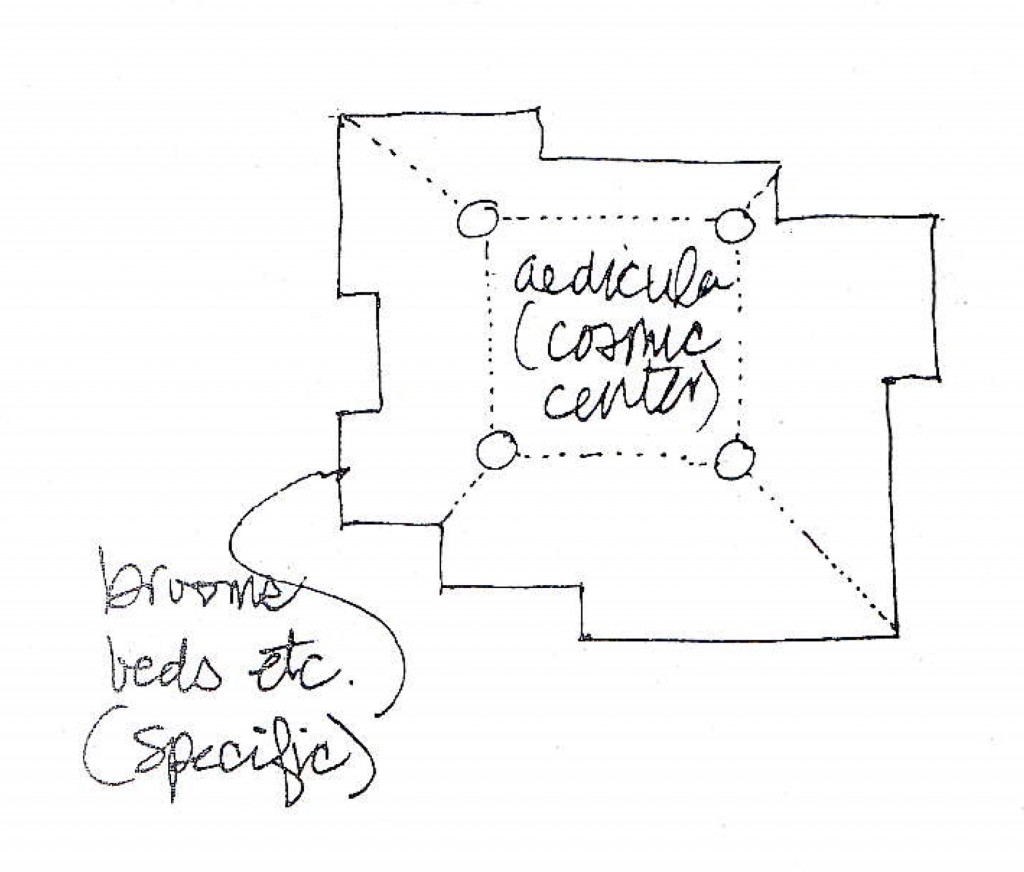 aedicula
(cosmic
center)
brooms
beds etc.
(specific)